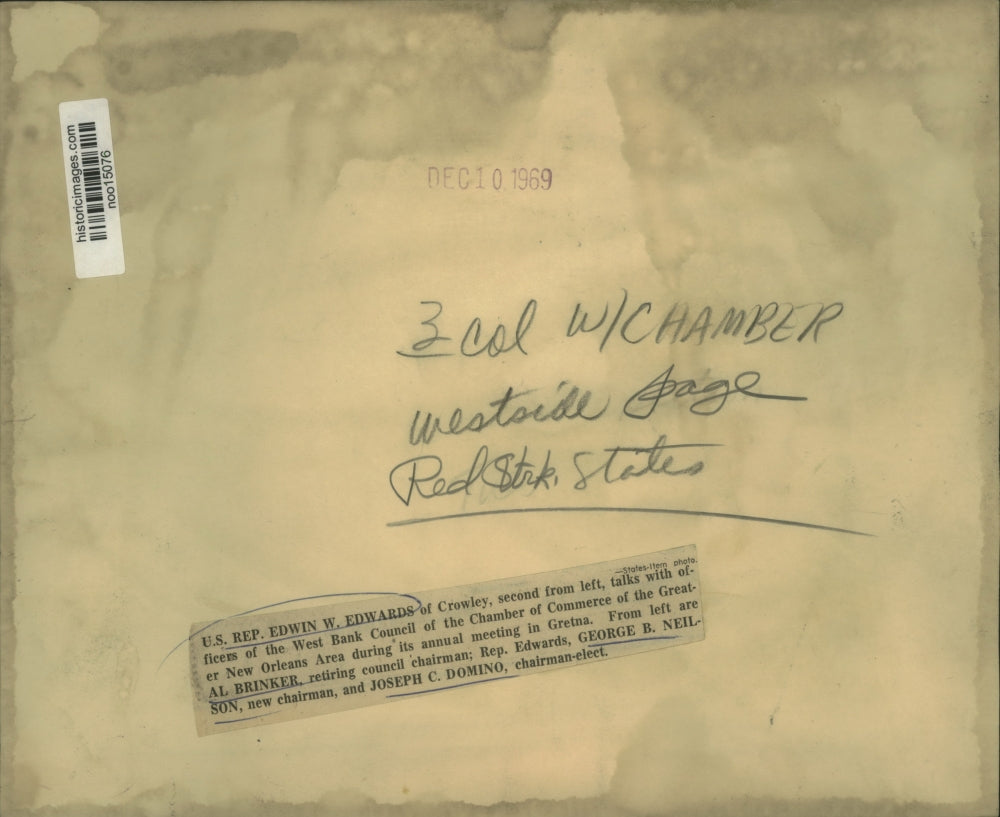 historicimages.com
noo15076
DEC 10 1969
3 col W/CHAMBER
westside page
Red Strk. States
—States-Item photo.
U.S. REP. EDWIN W. EDWARDS of Crowley, second from left, talks with of-
ficers of the West Bank Council of the Chamber of Commerce of the Great-
er New Orleans Area during its annual meeting in Gretna. From left are
AL BRINKER, retiring council chairman; Rep. Edwards, GEORGE B. NEIL-
SON, new chairman, and JOSEPH C. DOMINO, chairman-elect.